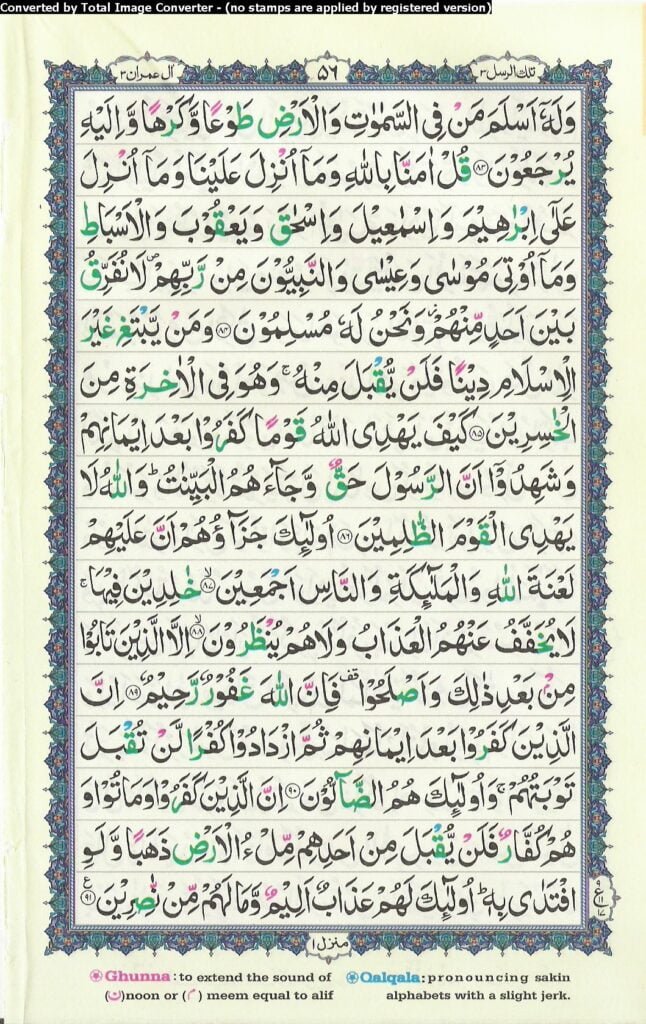 Converted by Total Image Converter - (no stamps are applied by registered version)
تلك الرسل ٣
٥٦
آل عمران ٣
وَلَهٗۤ اَسْلَمَ مَنْ فِی السَّمٰوٰتِ وَالْاَرْضِ طَوْعًا وَّكَرْهًا وَّاِلَیْهِ
یُرْجَعُوْنَ ﴿۸۳﴾ قُلْ اٰمَنَّا بِاللّٰهِ وَمَاۤ اُنْزِلَ عَلَیْنَا وَمَاۤ اُنْزِلَ
عَلٰۤی اِبْرٰهِیْمَ وَاِسْمٰعِیْلَ وَاِسْحٰقَ وَیَعْقُوْبَ وَالْاَسْبَاطِ
وَمَاۤ اُوْتِیَ مُوْسٰی وَعِیْسٰی وَالنَّبِیُّوْنَ مِنْ رَّبِّهِمْ ۪ لَا نُفَرِّقُ
بَیْنَ اَحَدٍ مِّنْهُمْ ؗ وَنَحْنُ لَهٗ مُسْلِمُوْنَ ﴿۸۴﴾ وَمَنْ یَّبْتَغِ غَیْرَ
الْاِسْلَامِ دِیْنًا فَلَنْ یُّقْبَلَ مِنْهُ ۚ وَهُوَ فِی الْاٰخِرَةِ مِنَ
الْخٰسِرِیْنَ ﴿۸۵﴾ كَیْفَ یَهْدِی اللّٰهُ قَوْمًا كَفَرُوْا بَعْدَ اِیْمَانِهِمْ
وَشَهِدُوْۤا اَنَّ الرَّسُوْلَ حَقٌّ وَّجَآءَهُمُ الْبَیِّنٰتُ ؕ وَاللّٰهُ لَا
یَهْدِی الْقَوْمَ الظّٰلِمِیْنَ ﴿۸۶﴾ اُولٰٓئِكَ جَزَآؤُهُمْ اَنَّ عَلَیْهِمْ
لَعْنَةَ اللّٰهِ وَالْمَلٰٓئِكَةِ وَالنَّاسِ اَجْمَعِیْنَ ﴿ۙ۸۷﴾ خٰلِدِیْنَ فِیْهَا ۚ
لَا یُخَفَّفُ عَنْهُمُ الْعَذَابُ وَلَا هُمْ یُنْظَرُوْنَ ﴿ۙ۸۸﴾ اِلَّا الَّذِیْنَ تَابُوْا
مِنْۢ بَعْدِ ذٰلِكَ وَاَصْلَحُوْا ۟قف فَاِنَّ اللّٰهَ غَفُوْرٌ رَّحِیْمٌ ﴿۸۹﴾ اِنَّ
الَّذِیْنَ كَفَرُوْا بَعْدَ اِیْمَانِهِمْ ثُمَّ ازْدَادُوْا كُفْرًا لَّنْ تُقْبَلَ
تَوْبَتُهُمْ ۚ وَاُولٰٓئِكَ هُمُ الضَّآلُّوْنَ ﴿۹۰﴾ اِنَّ الَّذِیْنَ كَفَرُوْا وَمَاتُوْا وَ
هُمْ كُفَّارٌ فَلَنْ یُّقْبَلَ مِنْ اَحَدِهِمْ مِّلْءُ الْاَرْضِ ذَهَبًا وَّلَوِ
افْتَدٰی بِهٖ ؕ اُولٰٓئِكَ لَهُمْ عَذَابٌ اَلِیْمٌ وَّمَا لَهُمْ مِّنْ نّٰصِرِیْنَ ﴿۹۱﴾ ع
منزل ۱
Ghunna: to extend the sound of (ن) noon or (م) meem equal to alif
Qalqala: pronouncing sakin alphabets with a slight jerk.